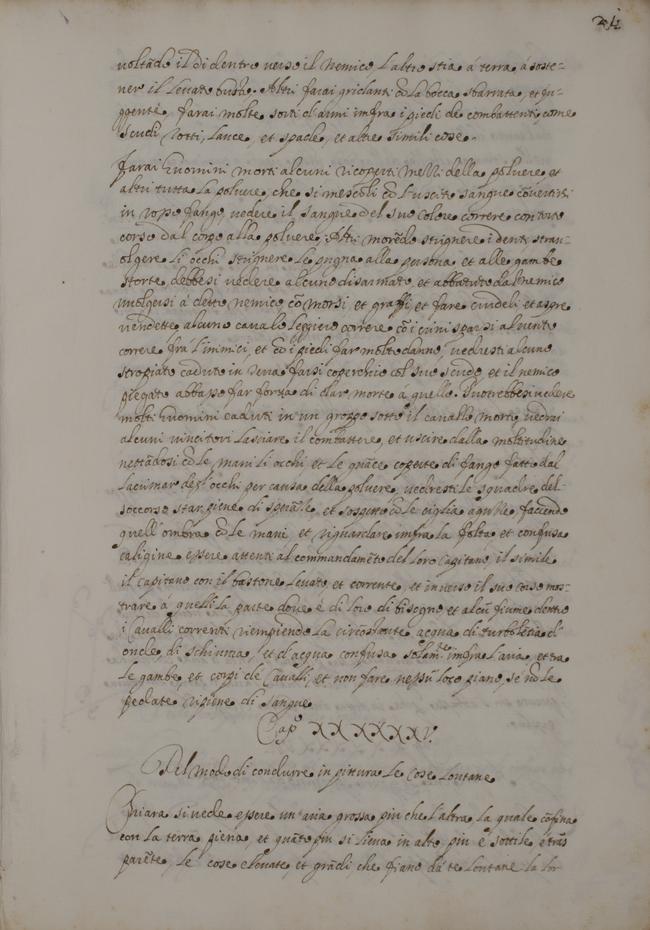 24
voltãdo il di dentro verso il nemico l'altro stia á terra á soste-
ner il levato busto. Altri farai gridanti cõ la bocca sbarrata, et fu-
ggente, farai molte sorti d'armi infra i piedi de combattenti come
scudi rotti, lance, et spade, et altre simili cose.
Farai huomini morti alcuni ricoperti mezzi della polvere et
altri tutta la polvere, che si mescoli cõ l'uscito sangue cõvertirsi
in rosso fango, vedere il sangue del suo colore correre con torto
corso dal corpo alla polvere, Altri morẽdo strignere i denti stra-
volgere li occhi strignere le pugna alla persona et alle gambe
storte, debbesi vedere alcuno disarmato et abbattuto dal nemico
rivolgersi á detto nemico cõ morsi et graffi, et fare crudeli et aspre
vendette, alcuno cavalo leggiero correre cõ i crini sparsi al vento
correre fra l'inimici, et cõ i piedi far molto danno, vedresti alcuno
stropiato caduto in terra farsi coperchio col suo scudo et il nemico
piegato abbasso far forza di dar morte a quello. Potrebbesi vedere
molti huomini caduti in un groppo sotto il cavallo morto, vedrai
alcuni vincitori lasciare il combattere, et uscire dalla moltitudine
nettãdosi cõ le mani li occhi et le guãce coperte di fango fatto dal
lacrimar degl'occhi per causa della polvere, vedresti le squadre del
soccorso star piene di sperãza, et sospetto cõ le ciglia aguzze facendo
quell'ombra cõ le mani et riguardare infra la folta et confusa
caligine essere attenti al commandamẽto del loro capitano, il simile
il capitano con il bastone levato et corrente, et inverso il suo corso mos-
trare á quelli la parte dove é di loro di bisogno et alcũ fiume dentro
i cavalli correnti riempiendo la circõstante acqua di turbolẽtia d'
onde, di schiuma, et d'acqua confusa infra l'aria, et tra
le gambe, et corpi de cavalli, et non fare nessũ loco piano, se nõ le
pedate ripiene di sangue
Cap.º XXXXXXV.
Del modo di condurre in pittura le cose lontane
Chiara si vede essere un'aria grossa piu che l'altra la quale cõfina
con la terra piena et quãto piu si lieva in alto piu é sottile é trãs
parẽte, le cose elevate et grãdi che fiano da te lontane la lor